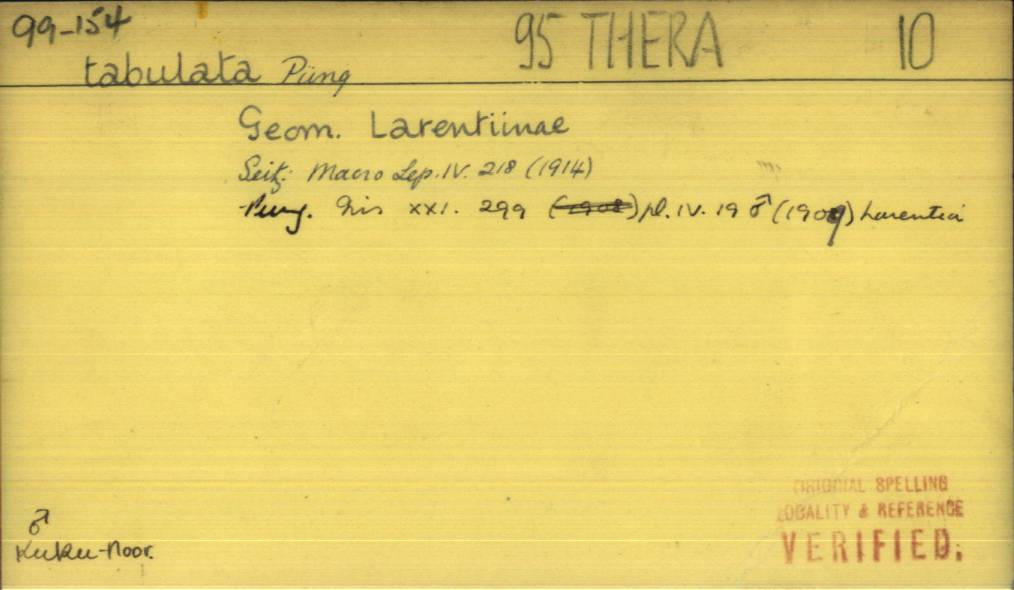 99-154
95 THERA 10
tabulata Püng
Geom. Larentiinae
Seitz. Macro Lep. IV. 218 (1914)
Püng. Iris XXI. 299 (1908) pl. IV. 19 ♂ (1909) Larentia
♂
Kuku-Noor.
ORIGINAL SPELLING
LOCALITY & REFERENCE
VERIFIED.